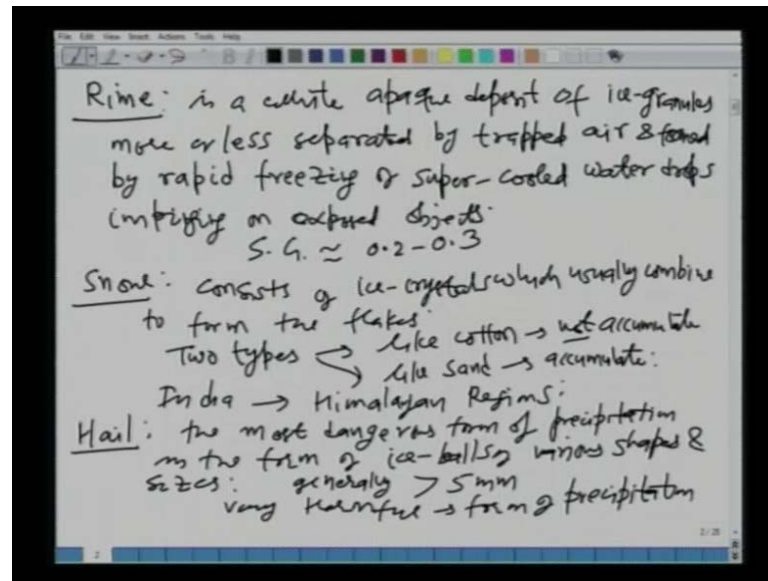 File Edit View Insert Actions Tools Help
Rime: is a white opaque deposit of ice-granules
more or less separated by trapped air & formed
by rapid freezing of super-cooled water drops
impinging on exposed objects.
S.G. ≃ 0.2-0.3
Snow: consists of ice-crystals which usually combine
to form the flakes.
Two types → like cotton → not accumulate
→ like sand → accumulate:
India → Himalayan Regions:
Hail: the most dangerous form of precipitation
in the form of ice-balls of various shapes &
sizes: generally > 5mm
very Harmful → form of precipitation
2/25
2